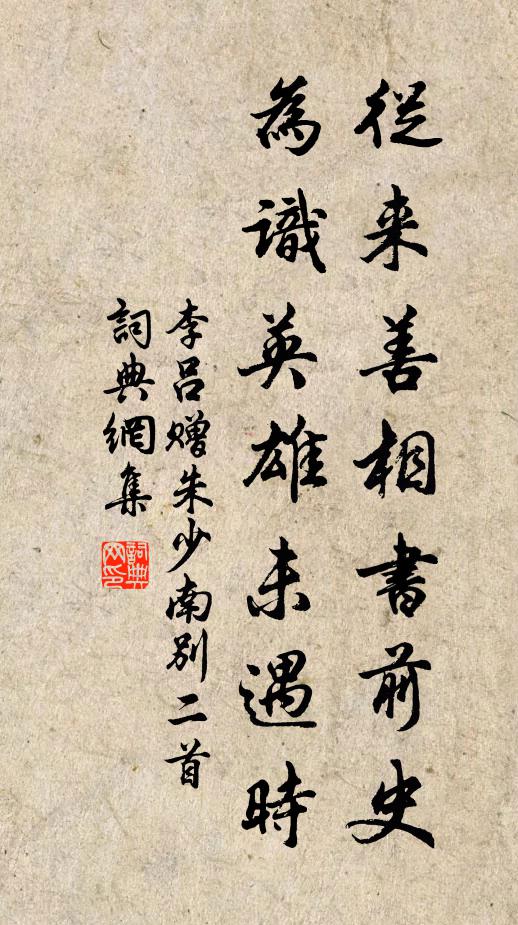 從来善相書前史
為識英雄未遇時
李吕赠朱少南别二首
詞典網集
詞典网印